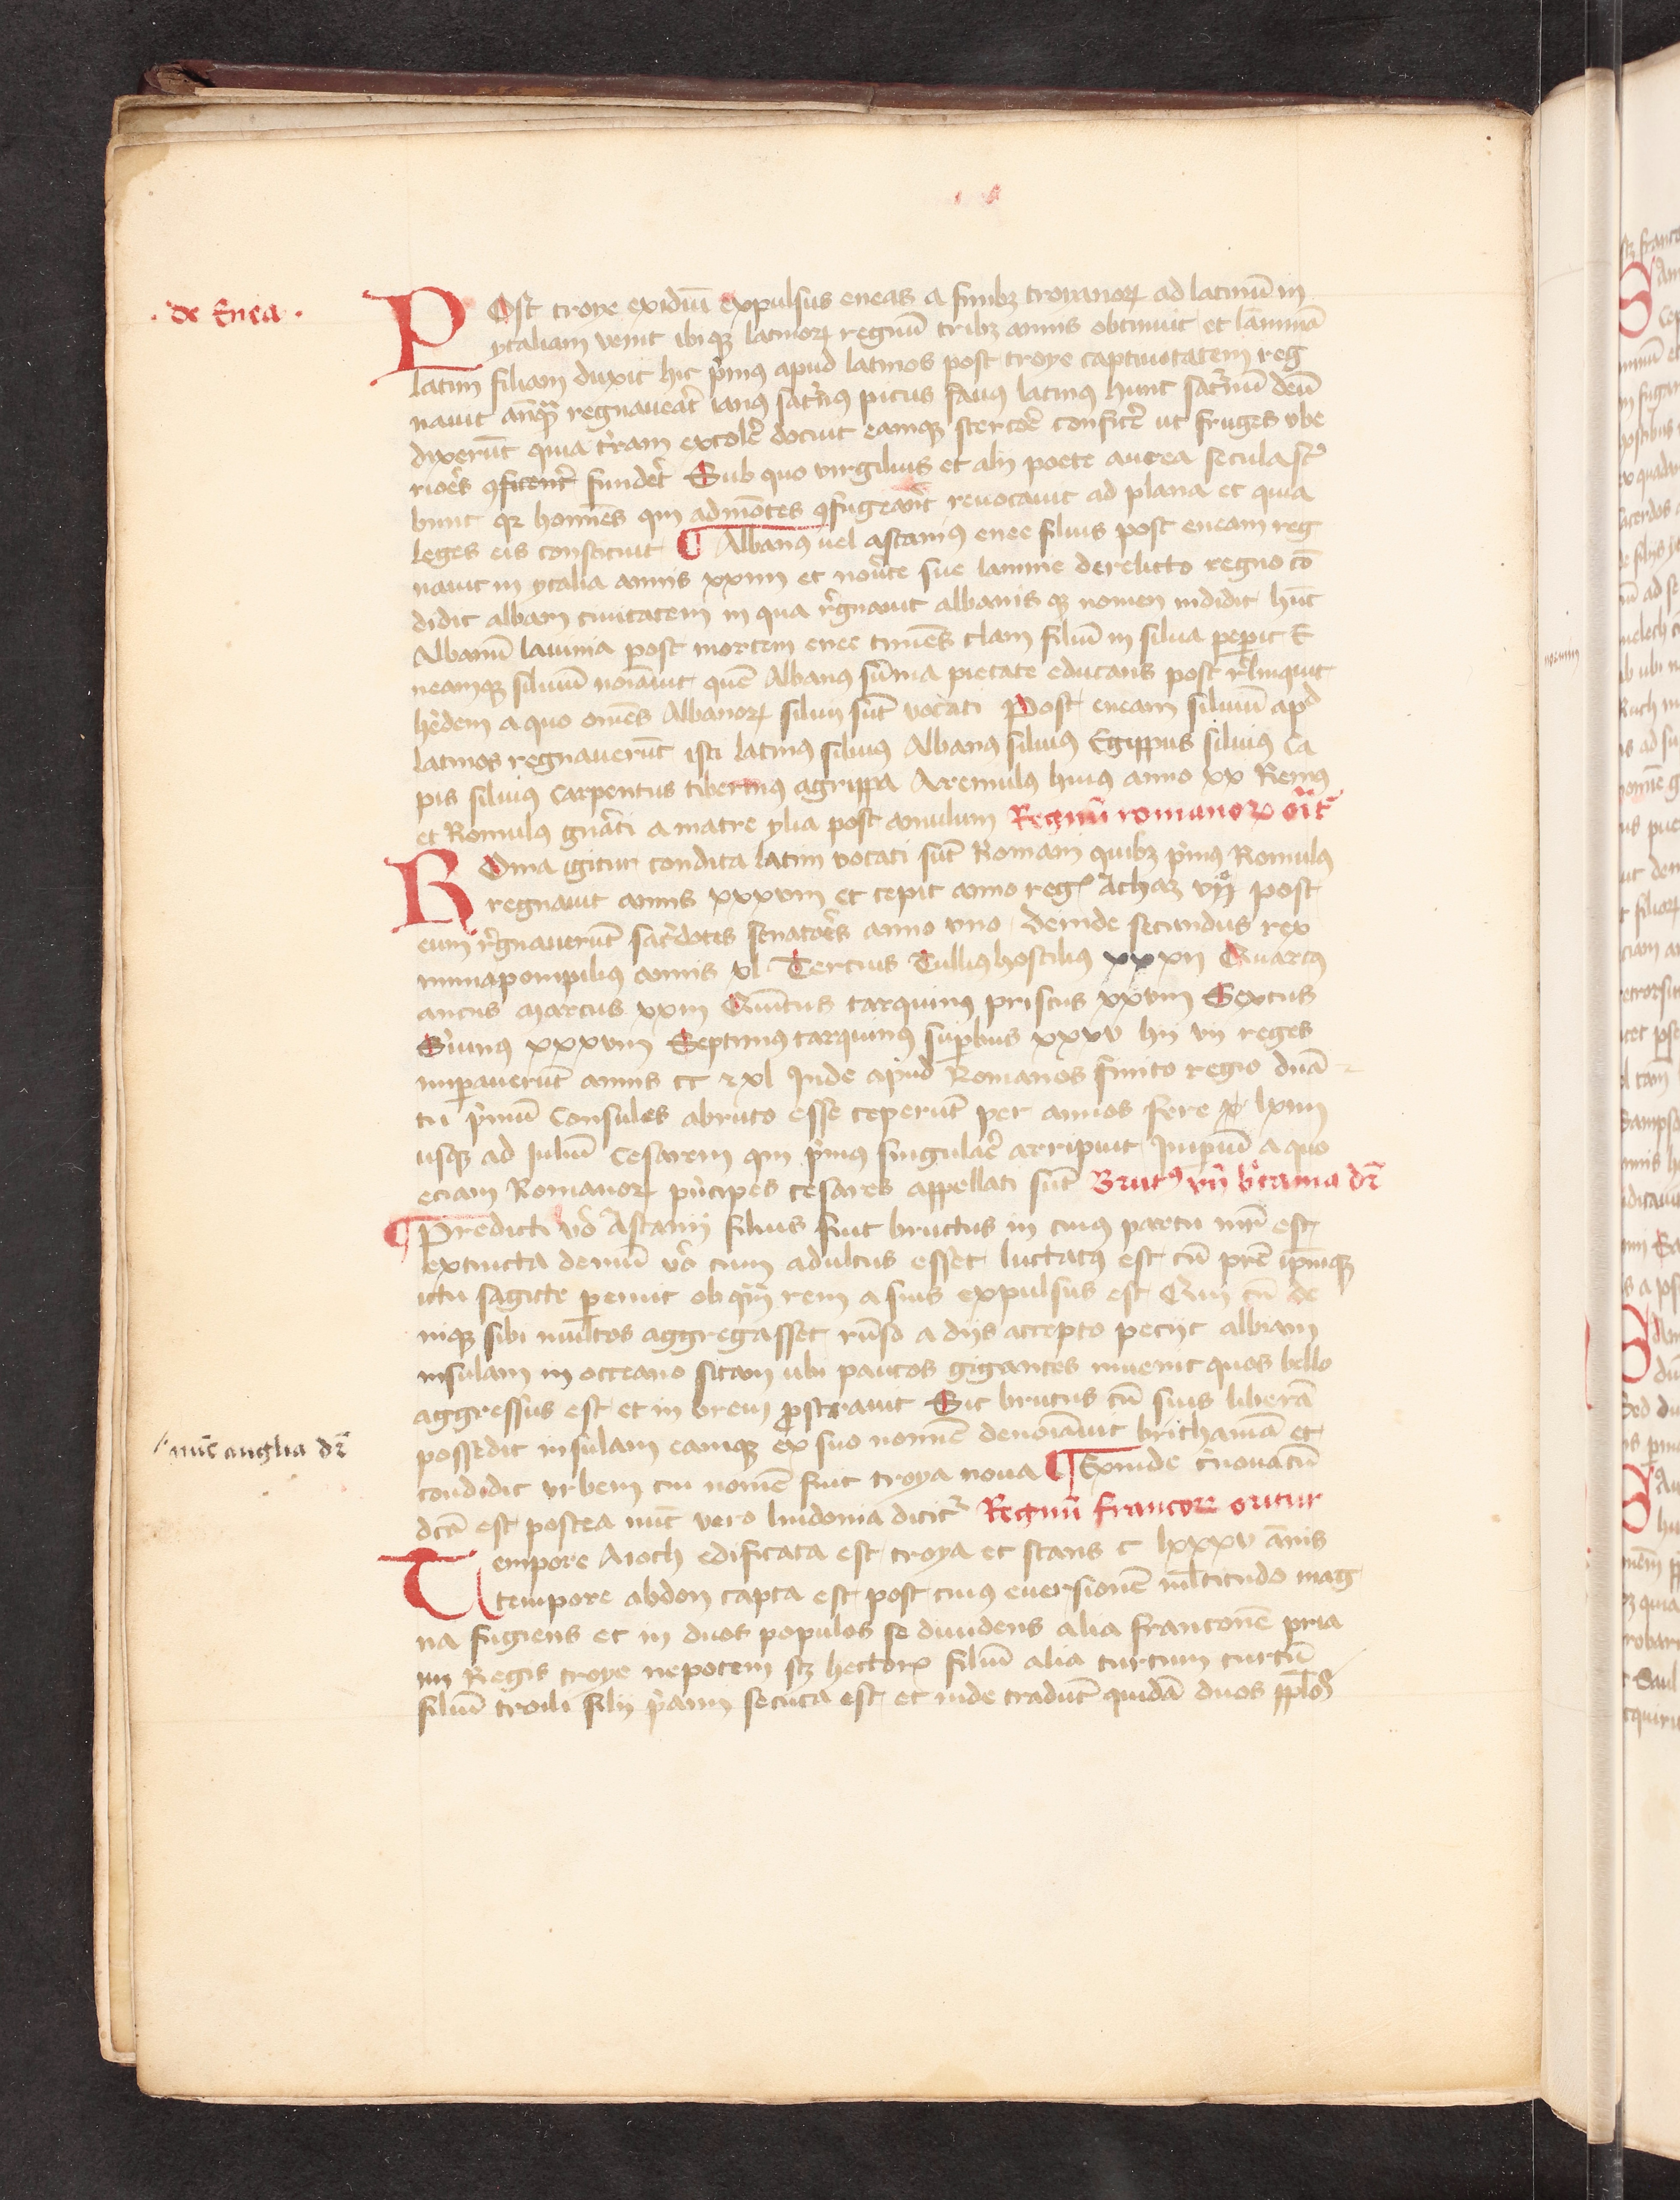 · de Enea ·
POst troye exidiū expulsus eneas a finibꝫ troianoꝝ ad latinū in
ytaliam venit ibi qꝫ latinoꝝ regnū tribꝫ annis obtinuit et lauiniā
latini filiam duxit hic p̓mꝰ apud latinos post troye captiuitatem reg
nauit an̄qua regnauerat̄ ianꝰ sat̓nꝰ picus fauꝰ latinꝰ hunc sat̓nū deū
dixerūt quia t̓ram excolē docuit eamqꝫ stercorē conficē ut fruges vbe
riores ꝯficent̓ funder̓ Sub quo virgilius et alij poete aurea secula sc̓
bunt qꝛ homīes qui ad mōtes ꝯfugerāt reuocauit ad plana et quia
leges eis constituit ¶ Albanꝰ uel ascaniꝰ enee filius post eneam reg
nauit in ytalia annis xxxiiii et nou̓ce sue lauinie derelicto regno cō
didit albam ciuitatem in qua r̓gnauit albanis qꝫ nomen indidit hūc
Albanū lauinia post mortem enee timēs clam filiū in silua peperit E
neamqꝫ siluiū noīauit quē Albanꝰ sūma pietate educans post r̓linquit
h̓edem a quo omēs Albanoꝝ siluii sūt vocati Post eneam siluiū apᵈ
latinos regnauerūt isti latinꝰ siluiꝰ Albanꝰ siluiꝰ Egippus siluiꝰ Ca
pis siluiꝰ Carpentus tiberinꝰ agrippa Aremulꝰ huiꝰ anno xx Remꝰ
et Romulꝰ gnāti a matre ylia post amulum Regnū romanoꝝ orīt᷑
ROma igitur condita latini vocati sūt Romani quibꝫ p̓mꝰ Romulꝰ
regnauit annis xxxviii et cepit anno regꝭ Achaz vii̊ post
eum r̓gnauerūt sac̓dotes senatores anno vno deinde secundus rex
numa pompiliꝰ annis xl Tercius Tulliꝰ hostiliꝰ xxxii Quartꝰ
ancus marcus xxiii Quītus tarquinꝰ priscus xxxviii Sextus
S̓uiuꝰ xxxviii Septimꝰ tarquinꝰ suꝑbus xxxv hij vij reges
imꝑauerūt annis cc ⁊ xl Inde apud Romanos finito regio ducā
tu p̓mū Consules a bruto esse ceperūt per annos fere lxiiii
usqꝫ ad Juliū Cesarem qui p̓mꝰ singularē arripuit Imꝑiū a quo
eciam Romanoꝝ p̓ncipes cesares appellati sūt Brutꝰ vn̄ b̓tania dr̄
¶ Predicti vō Ascanij filius fuit bructus in cuiꝰ partu mr̄ est
extincta demū vō cum adultus esset luctatꝰ est cū pr̄e ip̄mqꝫ
ictu sagitte ꝑemit ob qm̄ rem a suis expulsus est Qui cū de
niqꝫ sibi multos aggregasset rn̄so a dijs accepto pecijt albiam
insulam in occeano sitam ubi paucos gigantes inuenit quos bello
aggressus est et in breui ꝓstrauit Sic brutus cū suis liberā
possedit insulam eamqꝫ ex suo nomīe denoīauit brithaniā et
/ nūc anglia dr̄
condidit vrbem cui nomē fuit troya noua ¶ Exinde t̓nouatū
dc̄a est postea nūc vero lundonia dicit᷑ Regnū francoꝝ oritur
Tempore Aioth edificata est troya et stans c lxxxv anīs
tempore abdon capta est post cuiꝰ euersionē ml̄titudo mag
na fugiens et in duos populos se diuidens alia franconē pria
mi Regis troye nepotem scꝫ hectorꝭ filiū alia turcum turcū
filiū troili filij p̓ami secuta est et inde tradūt quidā duos pplōs